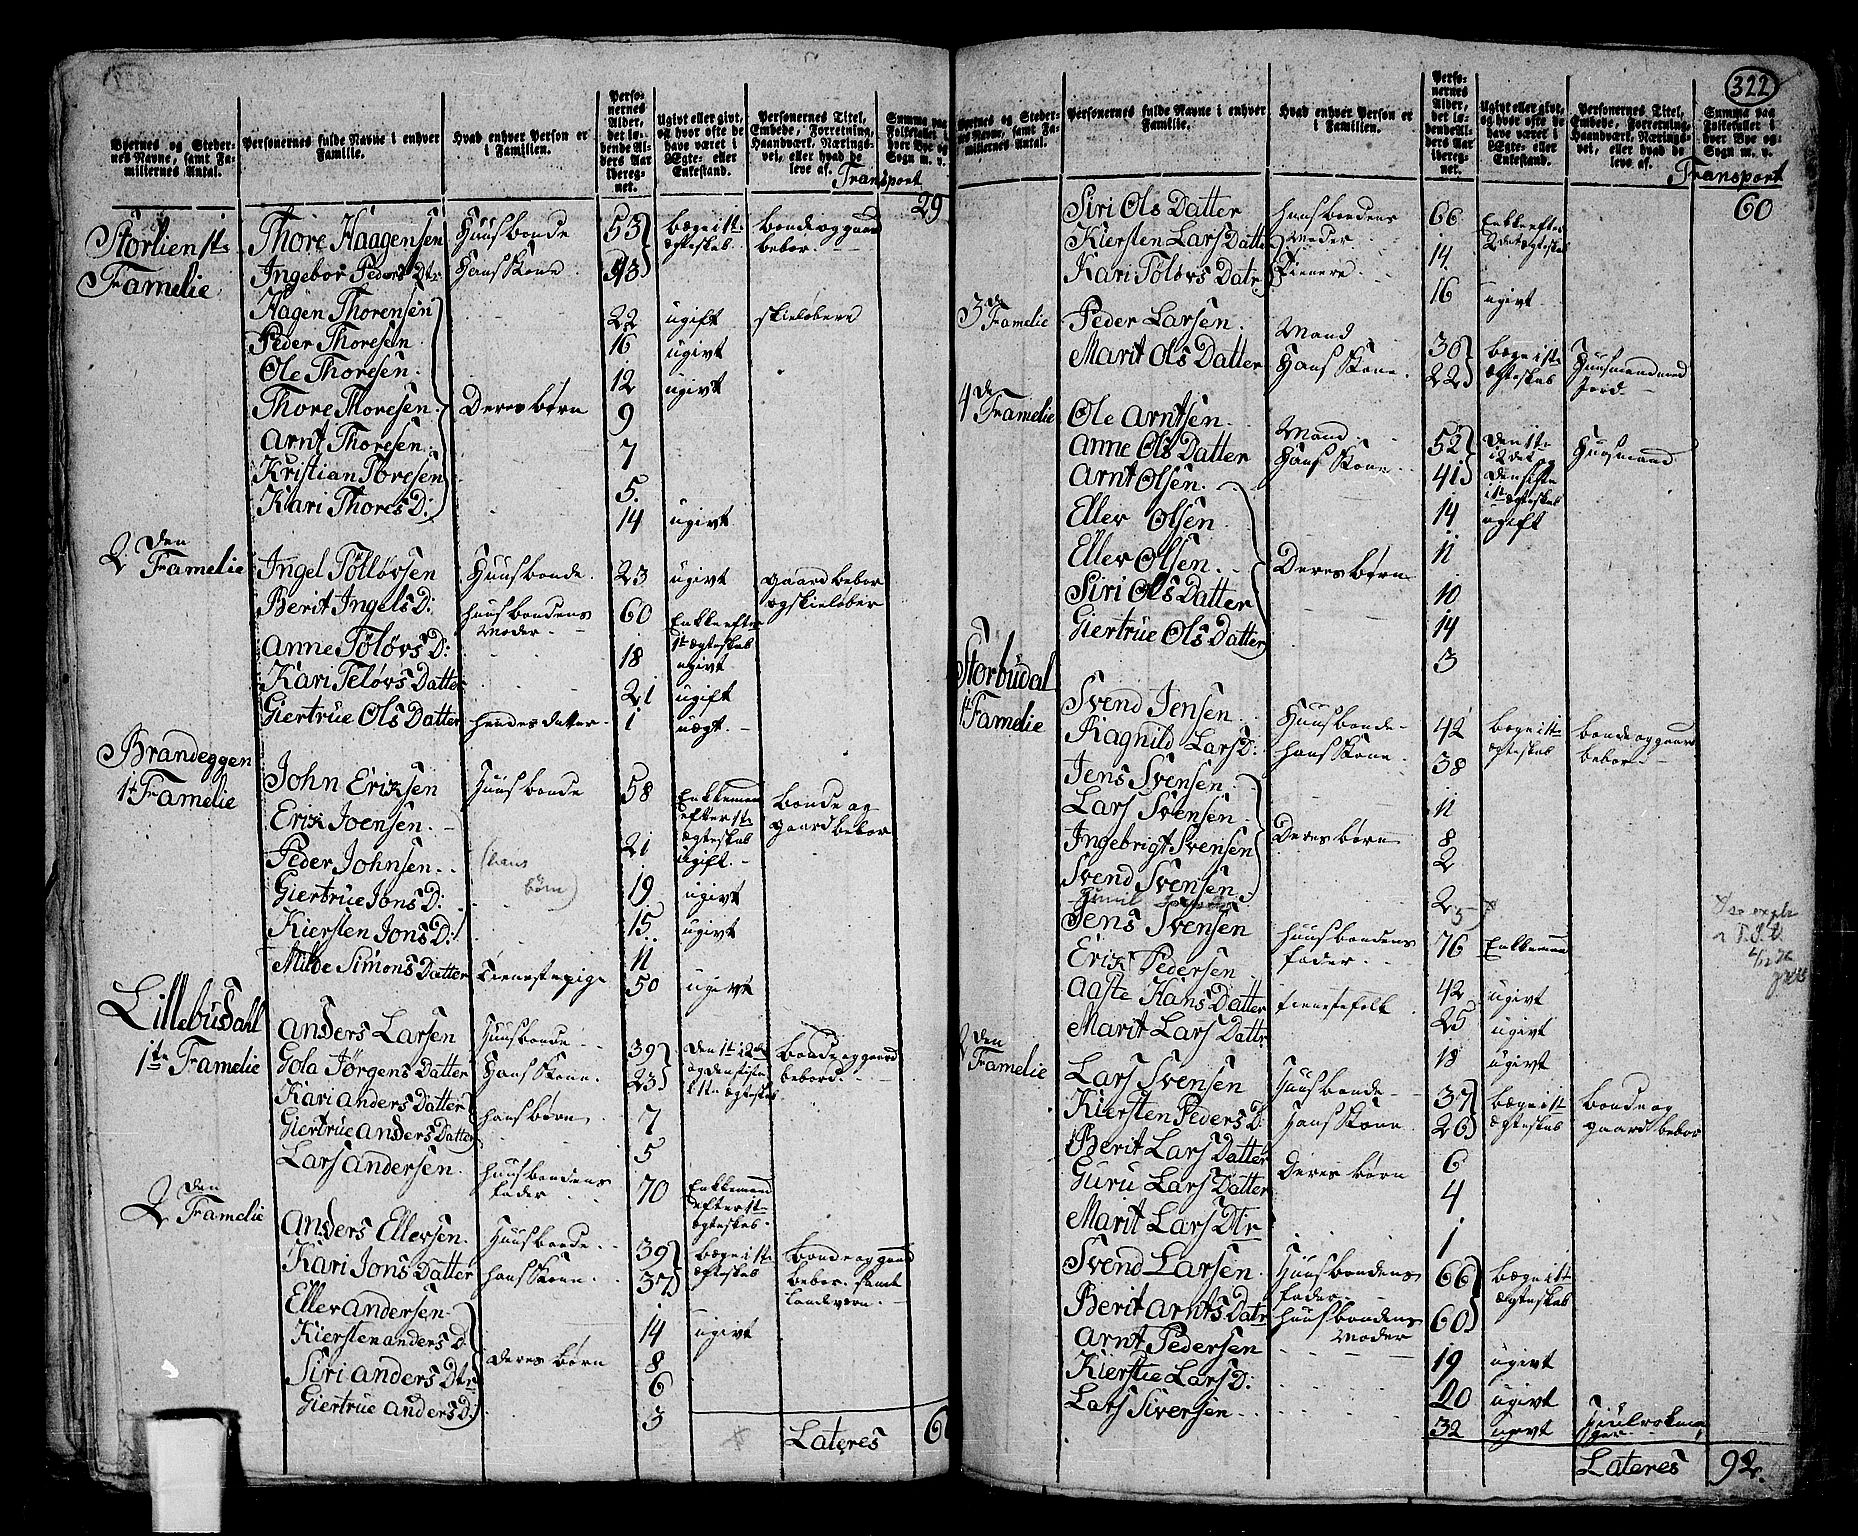 Byernes og Stedernes Navne, samt Familiernes Antal.
Personernes fulde Navne i enhver Familie.
Hvad enhver Person er i Familien.
Personernes Alder, det løbende Alders Aar iberegnet.
Ugivt eller givt, og hvor ofte de have været i Ægte- eller Enkestand.
Personernes Titel, Embede, Forretning, Haandværk, Næringsvei, eller hvad de leve af.
Transport 29
Storlien 1ste Thore Haagensen Huusbonde 53 bæge i 1st ægteskab bonde og gaard bebor
Familie Ingebor Peders Dtr Hans Kone 43
Hagen Thorensen 22 ugift skieløbere
Peder Thoresen 16 ugivt
Ole Thoresen 12 ugivt
Thore Thoresen Deres børn 9
Arnt Thoresen 7
Kristian Toresen 5
Kari Thores D: 14 ugivt
2 den Familie Ingel Tølløvsen Huusbonde 23 ugivt gaard bebor og skieløber
Berit Ingels D: huusbondens Moder 60 Enke efter 1st ægteskab
Anne Tøløvs D: 18 ugivt
Kari Teløvs Datter 21 ugift
Giertrue Ols Datter hendes datter 1 uægt
Brandeggen John Eriksen Huusbonde 58 Enkemand efter 1ste ægteskab bonde og gaard bebor
1st Familie Erik Joensen 21 ugift
Peder Johnsen (hans børn) 19 ugivt
Giertrue Jons D: 15 ugivt
Kiersten Jons D: 11
Milde Simons Datter tienestepige 50 ugivt
Lillebusdahl Anders Larsen Huusbonde 39 bonde og gaard bebor
1te Familie Gola Jørgens Datter Hans Kone 23
Kari Anders Datter hans børn 7
Giertrue Anders Datter 5
Lars Andersen huusbondens fader 70 Enkemand efter 1st ægteskab
2 den Familie Anders Ellersen Huusbonde 39 bæge i 1ste ægteskab bonde og gaard bebor samt Landværn
Kari Jons Datter hans Kone 37
Eller Andersen 14 ugivt
Kiersten Anders D 8
Siri Anders Dtr deres børn 6
Giertrue Anders D: 3
Lateres
322
Byernes og Stedernes Navne, samt Familiernes Antal.
Personernes fulde Navne i enhver Familie.
Hvad enhver Person er i Familien.
Personernes Alder, det løbende Alders Aar iberegnet.
Ugivt eller givt, og hvor ofte de have været i Ægte- eller Enkestand.
Personernes Titel, Embede, Forretning, Haandværk, Næringsvei, eller hvad de leve af.
Summa paa Folketallet i hver Bye og Sogn m. v.
Transport 60
Siri Ols Datter huusbondens Moder 66 Enke efter 2det ægteskab
Kiersten Lars Datter 14
Kari Tøløvs Datr tienere 16 ugivt
3 de Familie Peder Larsen Mand 30 bæge i 1ste ægteskab Huusmand med Jord
Marit Ols Datter Hans Kone 22
4 de Familie Ole Arntsen Mand 52 Huusmand
Anne Ols Datter Hans Kone 41
Arnt Olsen 14 ugift
Eller Olsen 11
Eller Olsen Deres børn 10
Siri Ols Datter 14
Giertrue Ols Datter 3
Storbudal
1st Familie Svend Jensen Huusbonde 42 bæge i 1te ægteskab bonde og gaard bebor
Ragnild Lars D: hans Kone 38
Jens Svensen 11
Lars Svensen 8
Ingebrigt Svensen Deres børn 2
Svend Svensen 2
Jens Svensen huusbondens fader 76 Enkemand
Erik Pedersen 42 ugivt
Aaste Hans Datter tienestefolk 25 ugivt
Marit Lars Dattr 18 ugivt
2 den Familie Lars Svensen Huusbonde 37 bæge i 1st ægteskab bonde og gaard bebor
Kiersten Peders D: Hans Kone 26
Berit Lars Datter Deres børn 6
Guru Lars Datter 4
Marit Lars Dtr 1
Svend Larsen Huusbondens fader 66 bæge i 1st ægteskab
Berit Arnts Datr huusbondens Moder 60
Arnt Pedersen 19 ugivt
Kierstie Lars D: 20 ugivt
Lars Siversen 32 ugivt
Lateres 92.